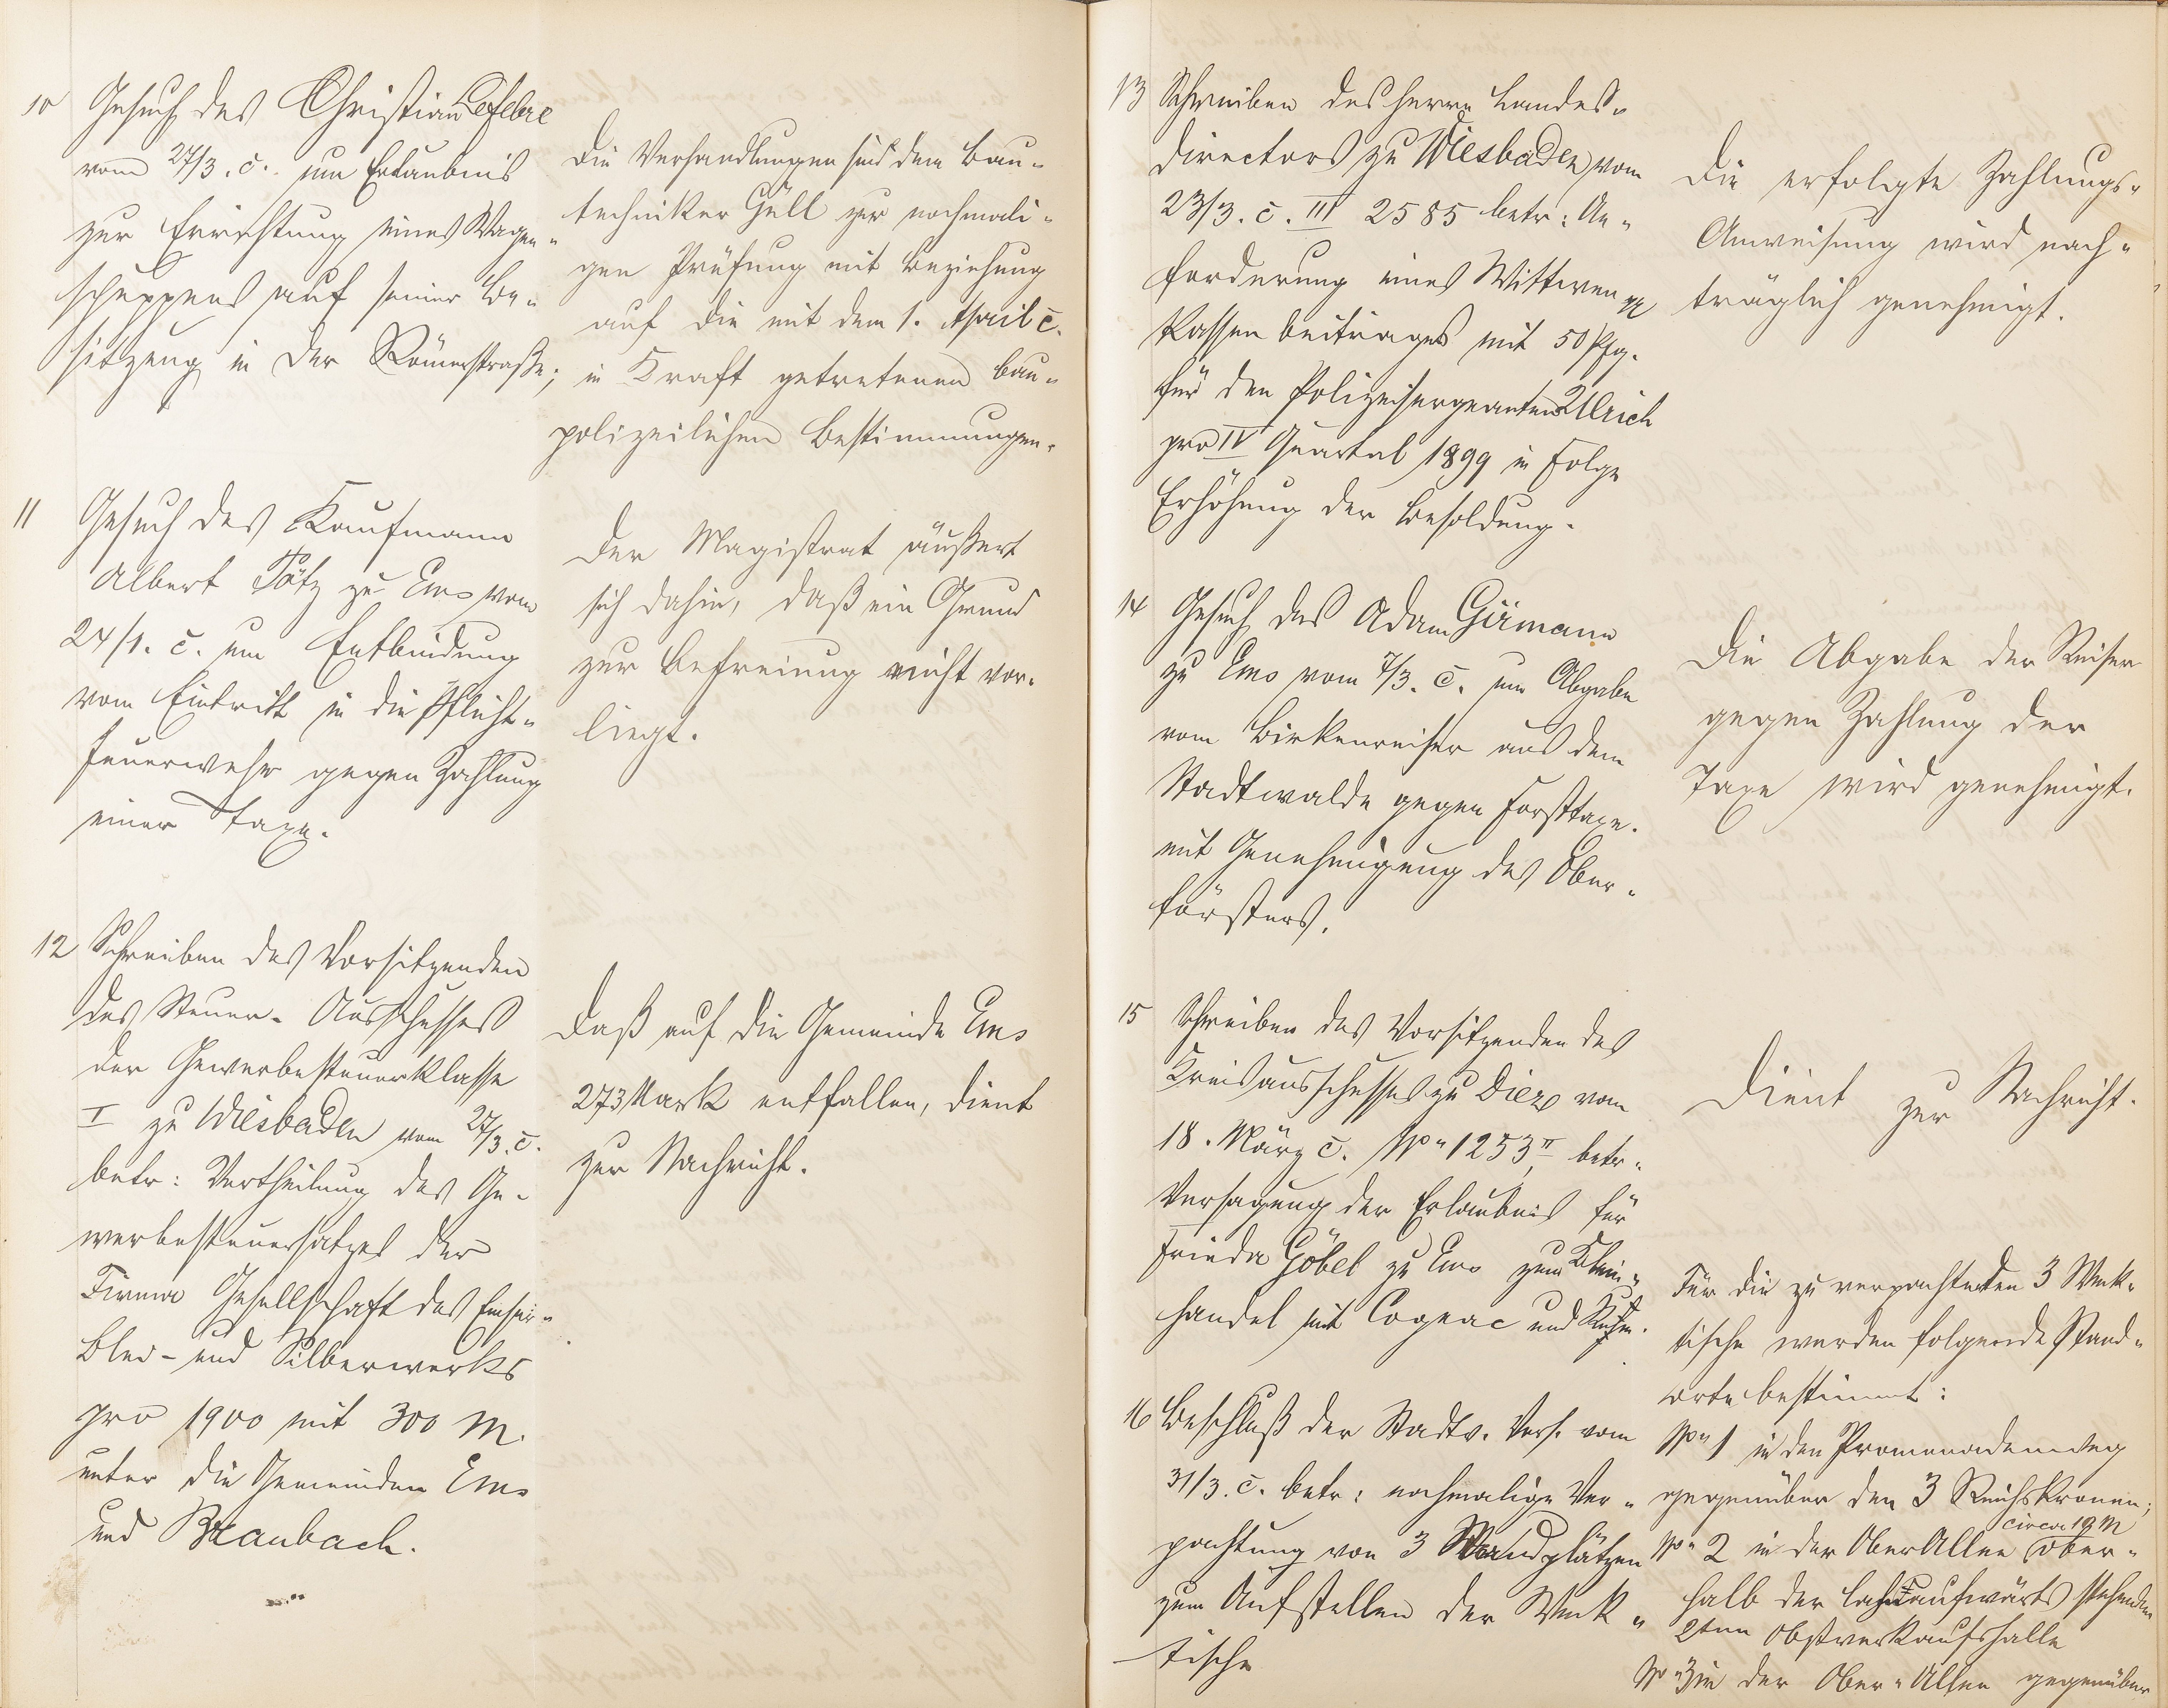 10 Gesuch des Christian Lefebre
vom 27/3. c. um Erlaubnis
zur Errichtung eines Wagen-
schuppens auf seiner Be-
sitzung in der Römerstraße;
Die Verhandlungen sind dem Bau-
techniker Güll zur nochmali-
gen Prüfung mit Beziehung
auf die mit dem 1. April c.
in Kraft getretenen bau-
polizeilichen Bestimmungen.
11 Gesuch des Kaufmann
Albert Tötz zu Ems vom
24/1. c. um Entbindung
vom Eintritt in die Pflicht-
feuerwehr gegen Zahlung
einer Taxe.
Der Magistrat äußert
sich dahin, daß ein Grund
zur Befreiung nicht vor-
liegt.
12 Schreiben des Vorsitzenden
des Steuer-Ausschusses
der Gewerbesteuerklasse
I zu Wiesbaden vom 27/3. c.
betr: Vertheilung des Ge-
werbesteuersatzes der
Firma Gesellschaft des Emser-
Blei- und Silberwerks
pro 1900 mit 300 M.
unter die Gemeinden Ems
und Braubach.
Daß auf die Gemeinde Ems
273 Mark entfallen, dient
zur Nachricht.
13 Schreiben des Herrn Landes-
directors zu Wiesbaden vom
23/3. c. III 2585 betr: An-
forderung eines Wittwen
Kassenbeitrages mit 50 Pfg.
für den Polizeisergeanten Ulrich
pro IV Quartal 1899 in Folge
Erhöhung der Besoldung.
Die erfolgte Zahlungs-
Anweisung wird nach-
träglich genehmigt.
14 Gesuch des Adam Girmann
zu Ems vom 7/3. c. um Abgabe
vom Birkenreiser aus dem
Stadtwalde gegen Forsttaxe.
mit Genehmigung des Ober-
försters.
Die Abgabe der Reiser
gegen Zahlung der
Taxe wird genehmigt.
15 Schreiben des Vorsitzenden des
Kreisausschusses zu Diez vom
18. März c. No 1253 II betr.
Versagung der Erlaubnis für
Frieda Göbel zu Ems zum Klein-
handel mit Cognac und Rum.
Dient zur Nachricht.
16 Beschluß der Stadtv. Vers. vom
31/3. c. betr: nochmalige Ver-
pachtung von 3 Standplätzen
zum Aufstellen der Weck-
tische
Für die zu verpachtenden 3 Weck-
tische werden folgende Stand-
orte bestimmt:
No 1 in den Promenadenweg
gegenüber den 3 Reichskronen;
circa 19 m
No 2 in der Ober Allee ober-
halb der lahnaufwärts stehenden
2ten Obstverkaufshalle
No 3 in der Ober-Allee gegenüber